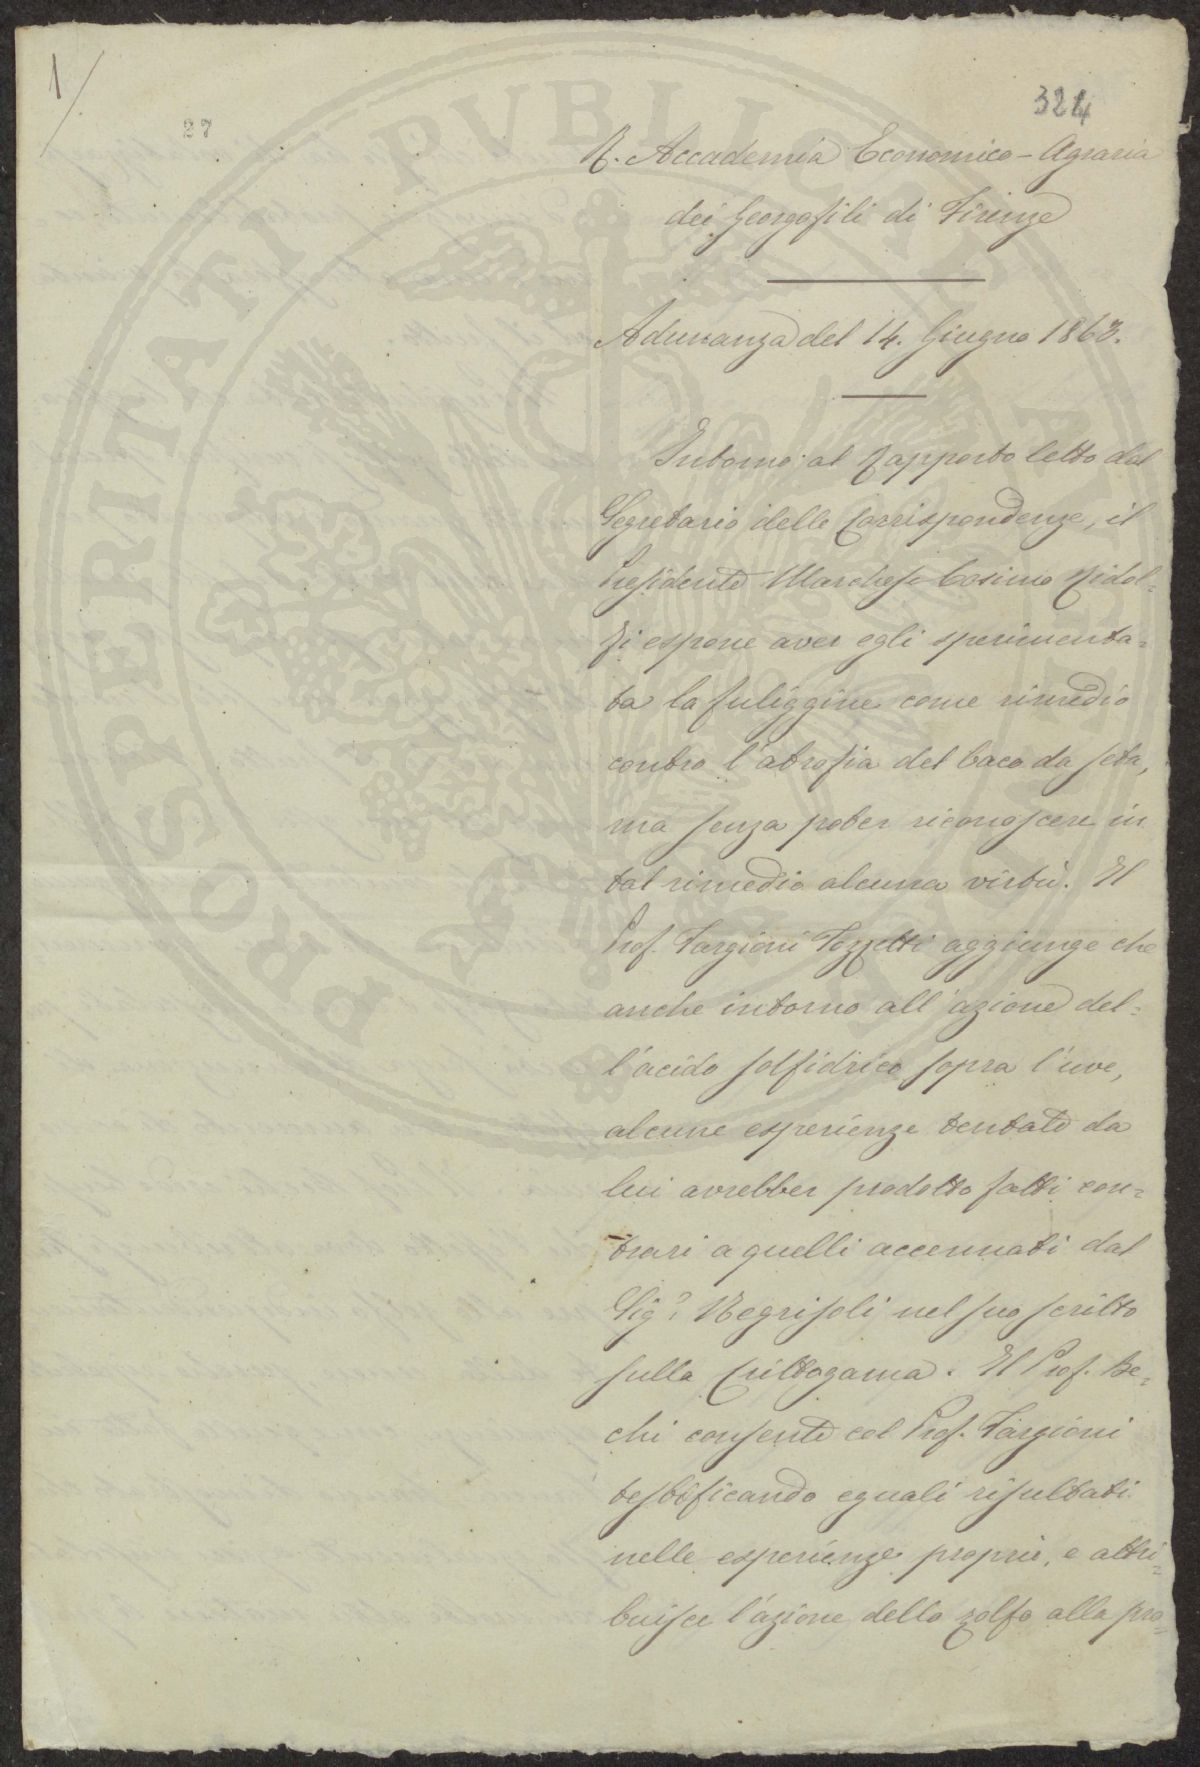 1/
27
324
R. Accademia Economico-Agraria
dei Georgofili di Firenze
Adunanza del 14. Giugno 1863.
Intorno al Rapporto letto dal
Segretario delle Corrispondenze, il
Presidente Marchese Cosimo Ridol=
fi espone aver egli sperimenta=
ta la fuliggine come rimedio
contro l'atrofia del baco da seta,
ma senza poter riconoscere in
tal rimedio alcuna virtù. Il
Prof. Targioni Tozzetti aggiunge che
anche intorno all'azione del=
l'acido solfidrico sopra l'uve,
alcune esperienze tentate da
lui avrebber prodotto fatti con=
trari a quelli accennati dal
Sigr. Negrisoli nel suo scritto
sulla Crittogama. Il Prof. Be=
chi consente col Prof. Targioni
testificando eguali risultati
nelle esperienze proprie, e attri=
buisce l'azione dello zolfo alla pro=
PROSPERITATI PVBLICAE AVGENDAE